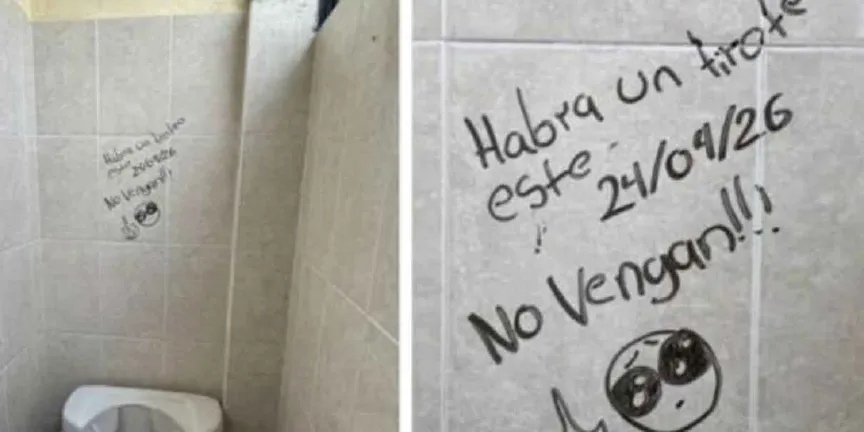 Habra un tirote
este
24/04/26
No Vengan!!!
Habra un tirote
este 24/04/26
No Vengan!!!